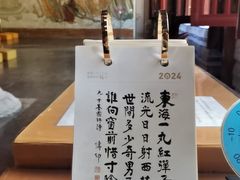 2024
東海一丸紅彈
流光日日射西
世間多少奇男
誰向窗前惜寸
傳印